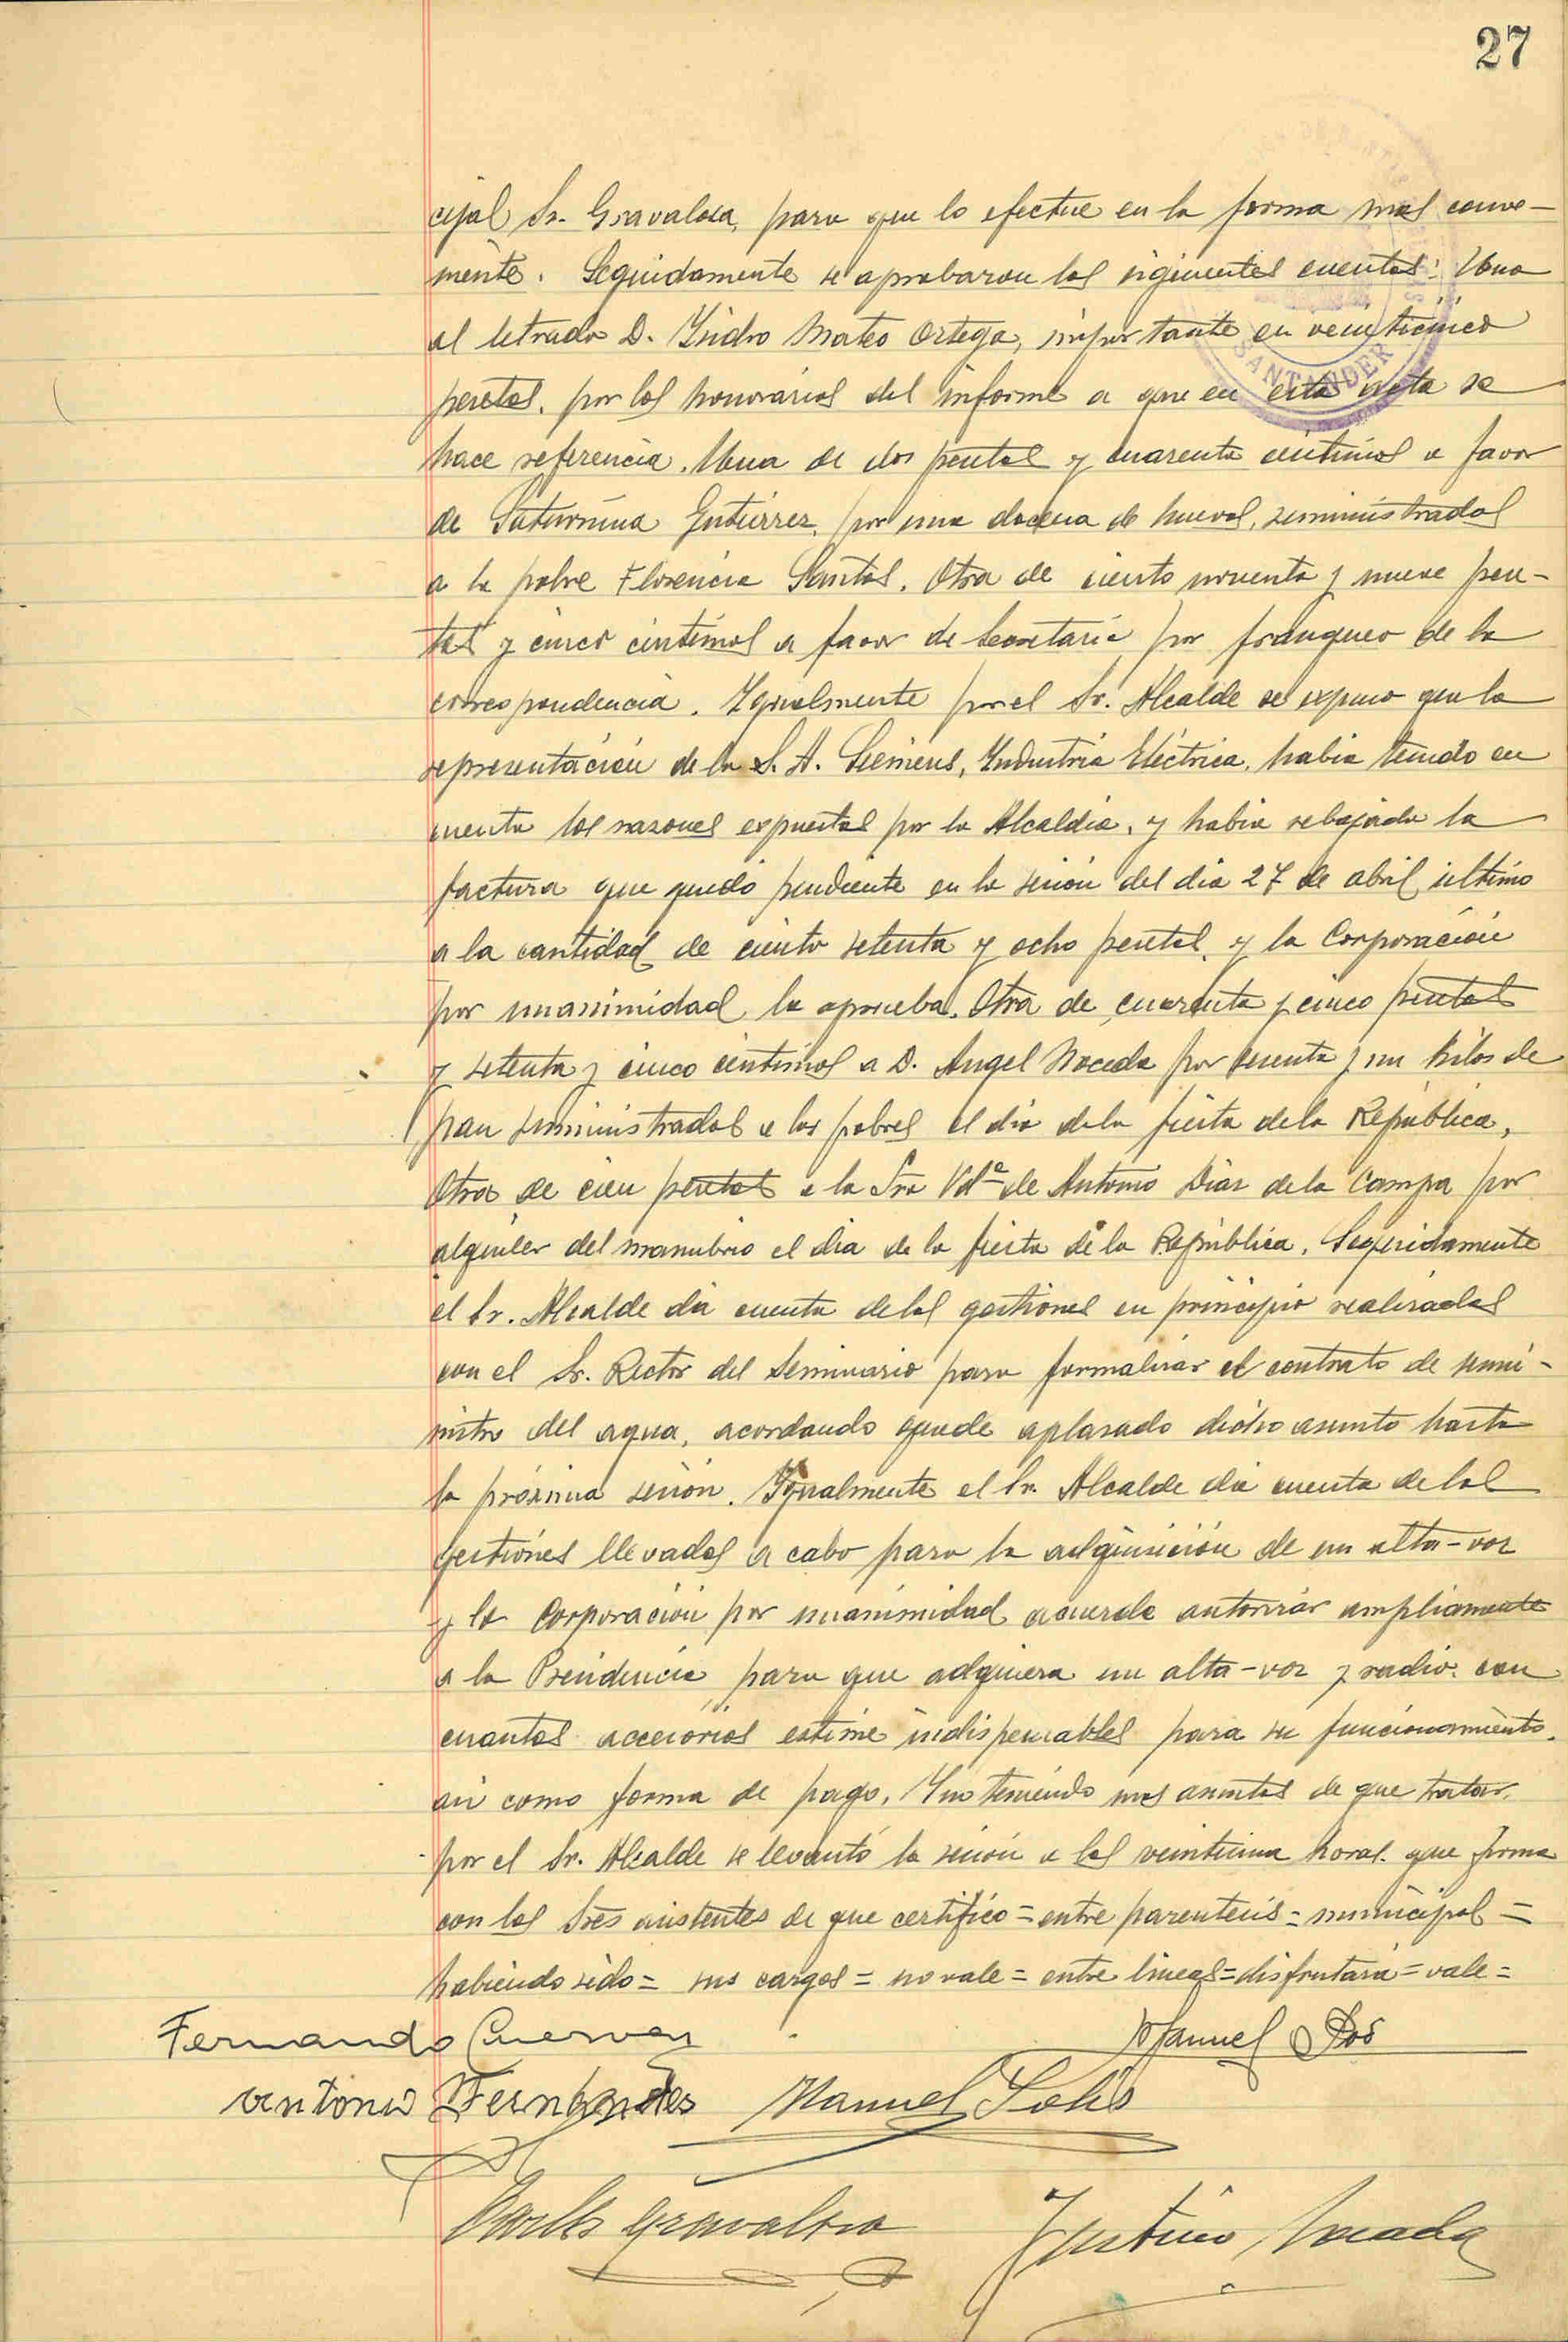 27
cejal Sr. Gravalosa, para que lo efectue en la forma mas conve-
niente. Seguidamente se aprobaron las siguientes cuentas: Una
al letrado D. Ysidro Mateo Ortega, importante en veinticinco
pesetas, por los honorarios del informe a que en esta acta se
hace referencia. Una de dos pesetas y cuarenta céntimos a favor
de Saturnina Gutiérrez, por una docena de huevos, suministrados
a la pobre Florencia Santos. Otra de ciento noventa y nueve pese-
tas y cinco céntimos a favor de Secretaria por franqueo de la
correspondencia. Ygualmente por el Sr. Alcalde se expuso que la
representación de la S. A. Siemens, Yndustria Eléctrica, habia tenido en
cuenta las razones expuestas por la Alcaldia, y habia rebajado la
factura que quedó pendiente en la sesión del dia 27 de abril último
a la cantidad de ciento setenta y ocho pesetas, y la Corporación
por unanimidad la aprueba. Otra de cuarenta y cinco pesetas
y setenta y cinco céntimos a D. Angel Noceda por sesenta y un kilos de
pan suministrados a los pobres el dia de la fiesta de la República,
Otra de cien pesetas a la Sra Vdª de Antonio Diaz de la Campa por
alquiler del manubrio el dia de la fiesta de la República. Seguidamente
el Sr. Alcalde da cuenta de las gestiones en principio realizadas
con el Sr. Rector del Seminario para formalizar el contrato de sumi-
nistro del agua, acordando quede aplazado dicho asunto hasta
la próxima sesión. Ygualmente el Sr. Alcalde da cuenta de las
gestiones llevadas a cabo para la adquisición de un alta-voz
y la Corporación por unanimidad acuerda autorizar ampliamente
a la Presidencia para que adquiera un alta-voz y radio con
cuantos accesorios estime indispensables para su funcionamiento,
asi como forma de pago. Y no teniendo mas asuntos de que tratar,
por el Sr. Alcalde se levantó la sesión a las veintiuna horas que firma
con los Sres asistentes de que certifico = entre parentesis = municipal =
habiendo sido = sus cargos = no vale = entre lineas = disfrutará = vale =
Fernando Cuevas Manuel
Antonio Fernandez Manuel Solis
Gravalosa Justino Noceda
SANTANDER